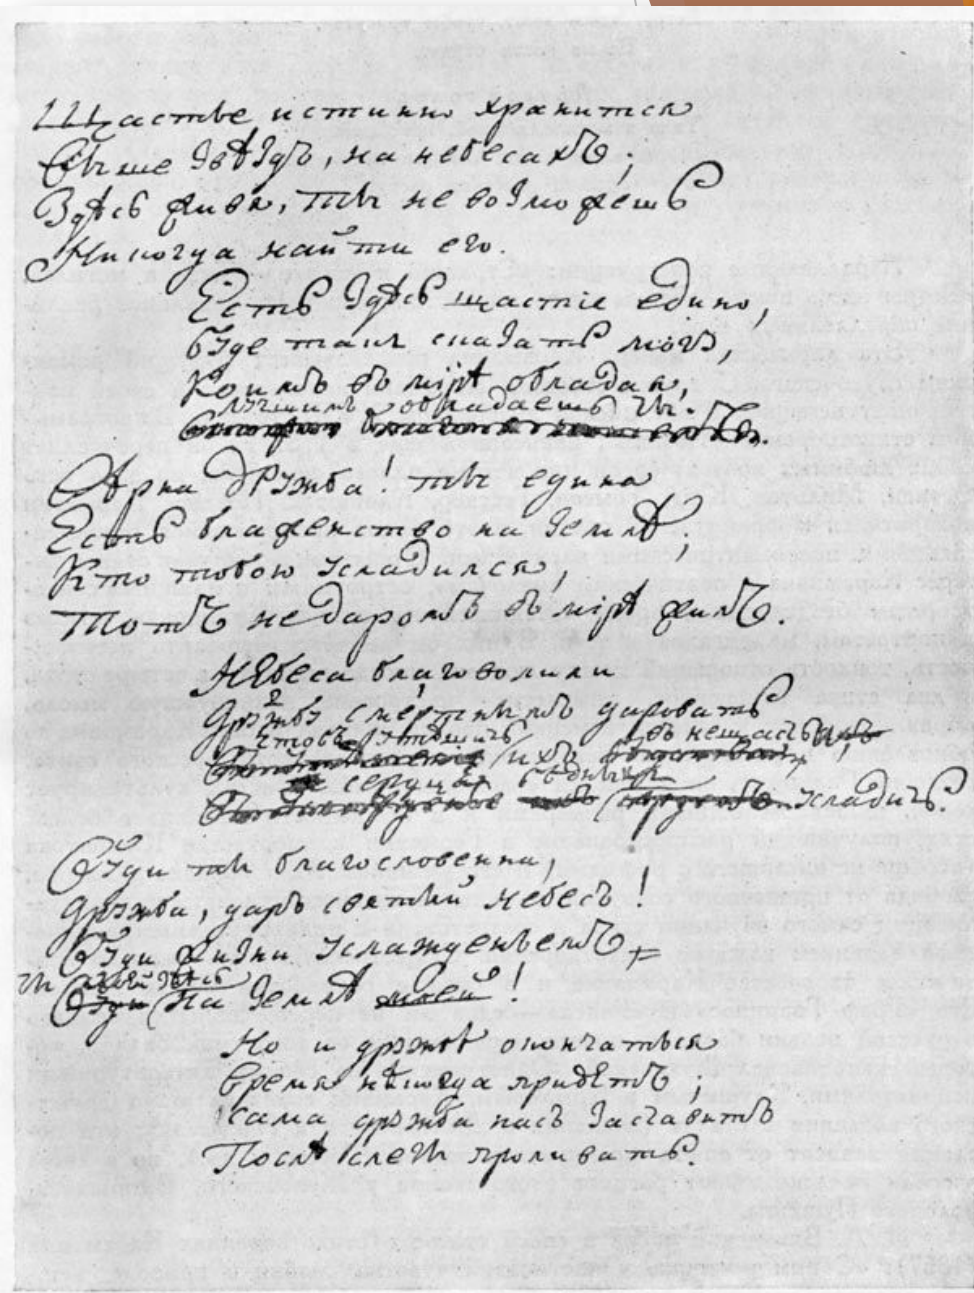 Щастье истинно хранится
Выше звѣздъ, на небесахъ;
Здѣсь живя, ты не возможешь
Никогда найти его.
Есть здѣсь щастіе едино,
Буде такъ сказать могу,
Коимъ въ мірѣ обладая,
Лучшимъ обладаешь ты.
Арна дружба! ты едина
Есть блаженство на землѣ;
Кто тобою усладился,
Тотъ недаромъ въ мірѣ жилъ.
Небеса благоволили
Дружбу смертнымъ даровать
Чтобъ утѣшить ихъ въ нещастьи
сердца усладить.
Буди ты благословенна,
Дружба, даръ святый небесъ!
Буди жизни услажденьемъ
ты моей здѣсь
Буди на землѣ моей!
Но и дружбѣ окончаться
Время нѣкогда придетъ;
Сама дружба насъ заставитъ
Послѣ слезы проливать.